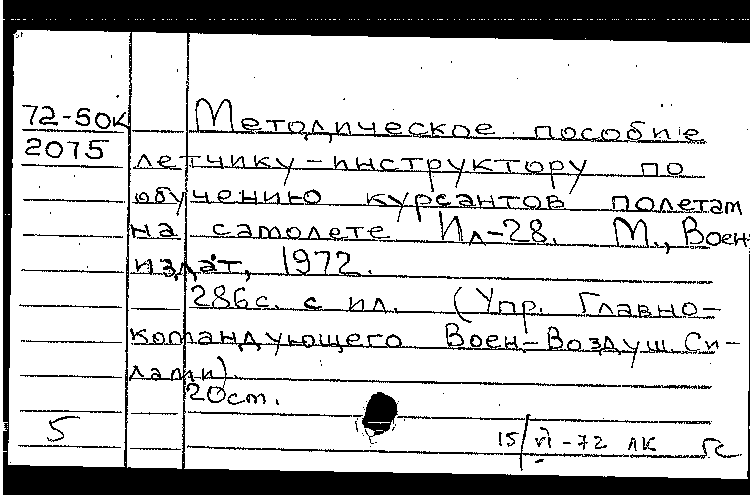 72-50к Методическое пособие
2075 летчику-инструктору по
обучению курсантов полетам
на самолете Ил-28. М., Воен-
издат, 1972.
286с. с ил. (Упр. Главно-
командующего Воен-Воздуш. Си-
лами).
20см.
5
15/VI-72 ЛК